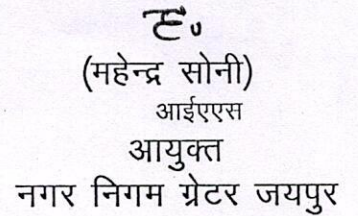 ह.
(महेन्द्र सोनी)
आईएएस
आयुक्त
नगर निगम ग्रेटर जयपुर